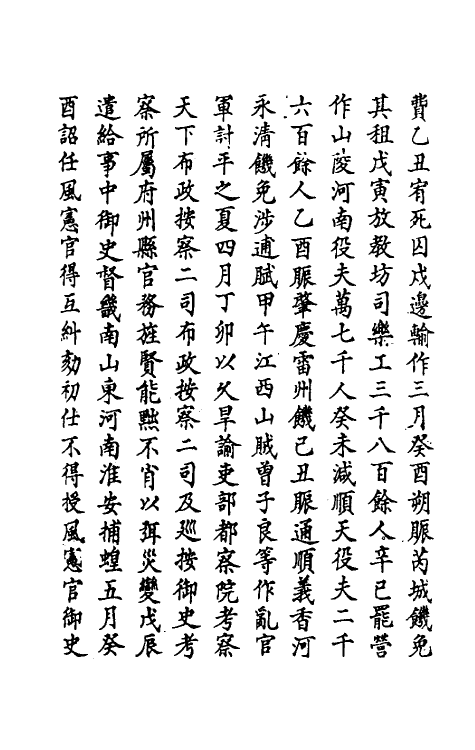 費乙丑宥死囚戍邊輸作三月癸酉朔賑芮城饑免
其租戊寅放教坊司樂工三千八百餘人辛巳罷營
作山陵河南役夫萬七千人癸未減順天役夫二千
六百餘人乙酉賑肇慶雷州饑己丑賑通順義香河
永清饑免涉逋賦甲午江西山賊曾子良等作亂官
軍計平之夏四月丁卯以久旱諭吏部都察院考察
天下布政按察二司布政按察二司及廵按御史考
察所屬府州縣官務旌賢能黜不肖以弭災變戊辰
遣給事中御史督畿南山東河南淮安捕蝗五月癸
酉詔任風憲官得互糾劾初仕不得授風憲官御史